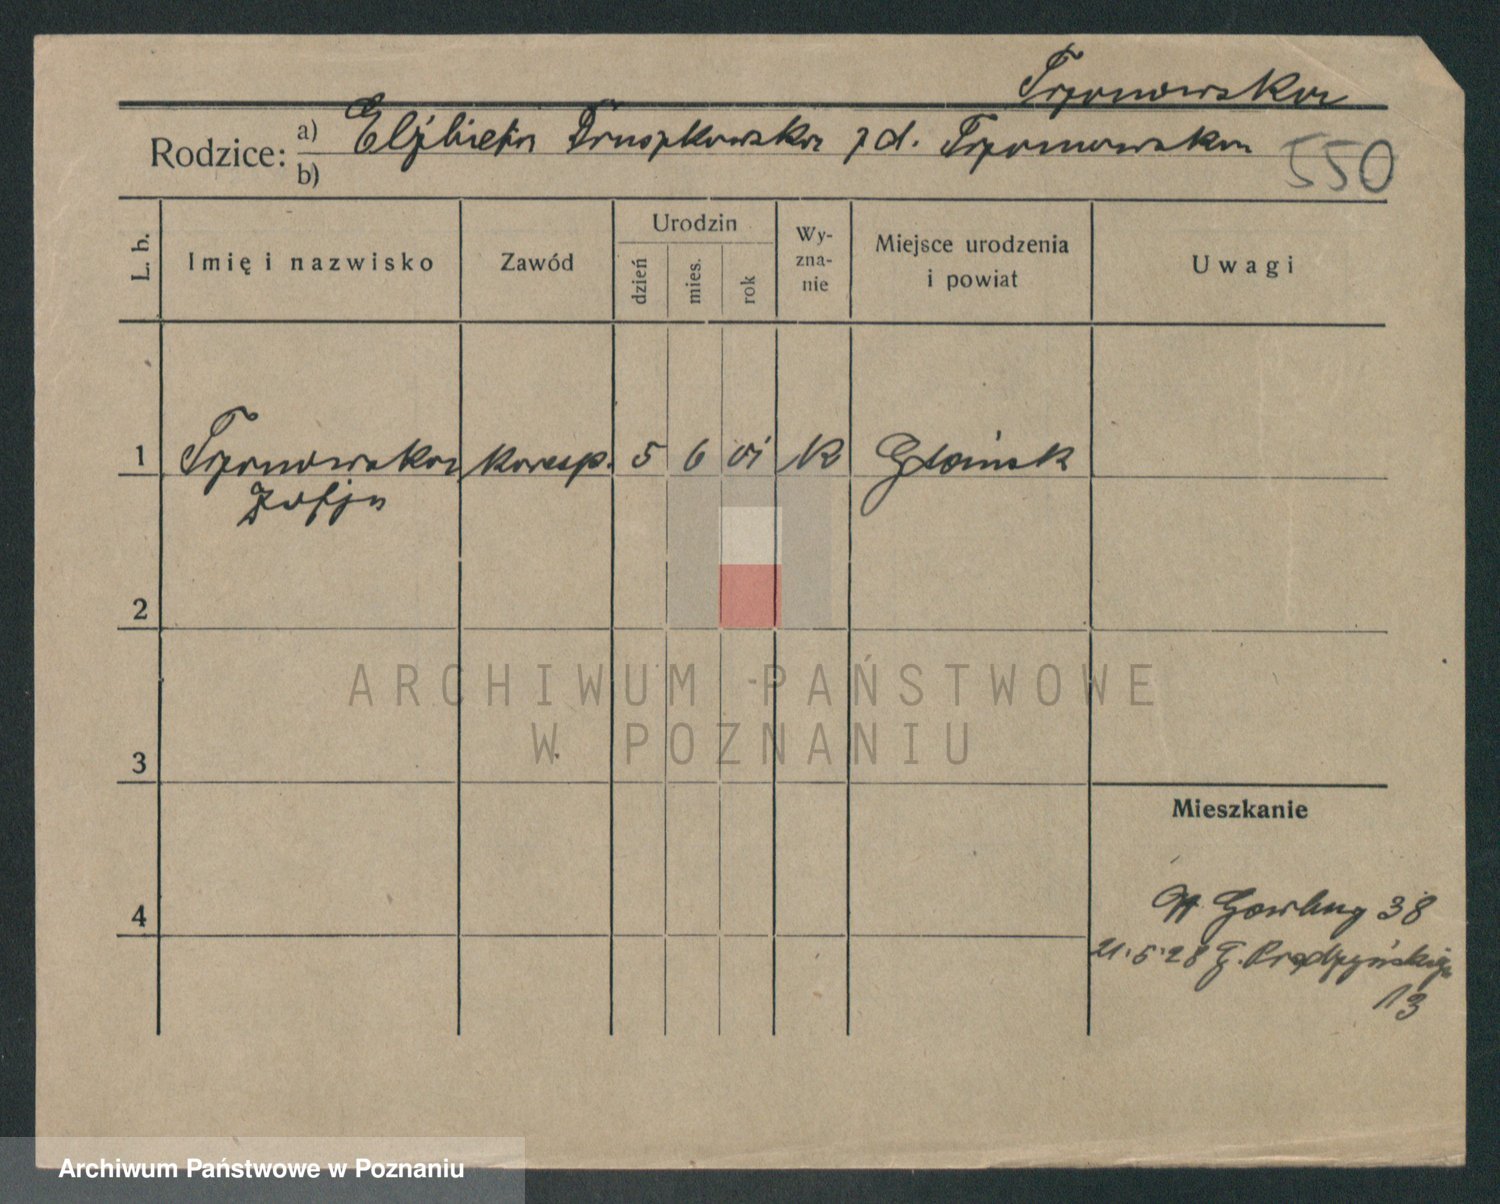 Trzonowska
Rodzice: a) Elżbieta Druszkowska zd. Trzonowska
550
b)
L. b. Imię i nazwisko Zawód Urodzin dzień mies. rok Wy-zna-nie Miejsce urodzenia i powiat Uwagi
1 Trzonowska koresp. 5 6 01 K Gdańsk
Zofja
2
ARCHIWUM PAŃSTWOWE
W POZNANIU
3
Mieszkanie
4
38
21.5.28 G. Prądzyńskiego
13
Archiwum Państwowe w Poznaniu